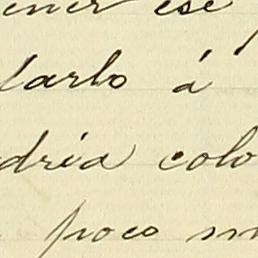 ener ese
larlo á
dria colo
poco m